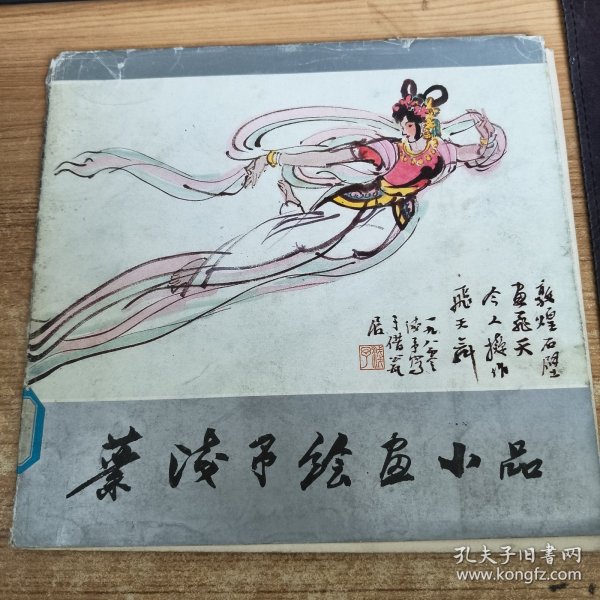 敦煌石壁
画飛天
今人摸作
飛天舞
一九八
浅予寫
于借
居
葉浅予绘画小品
孔夫子旧书网
www.kongfz.com